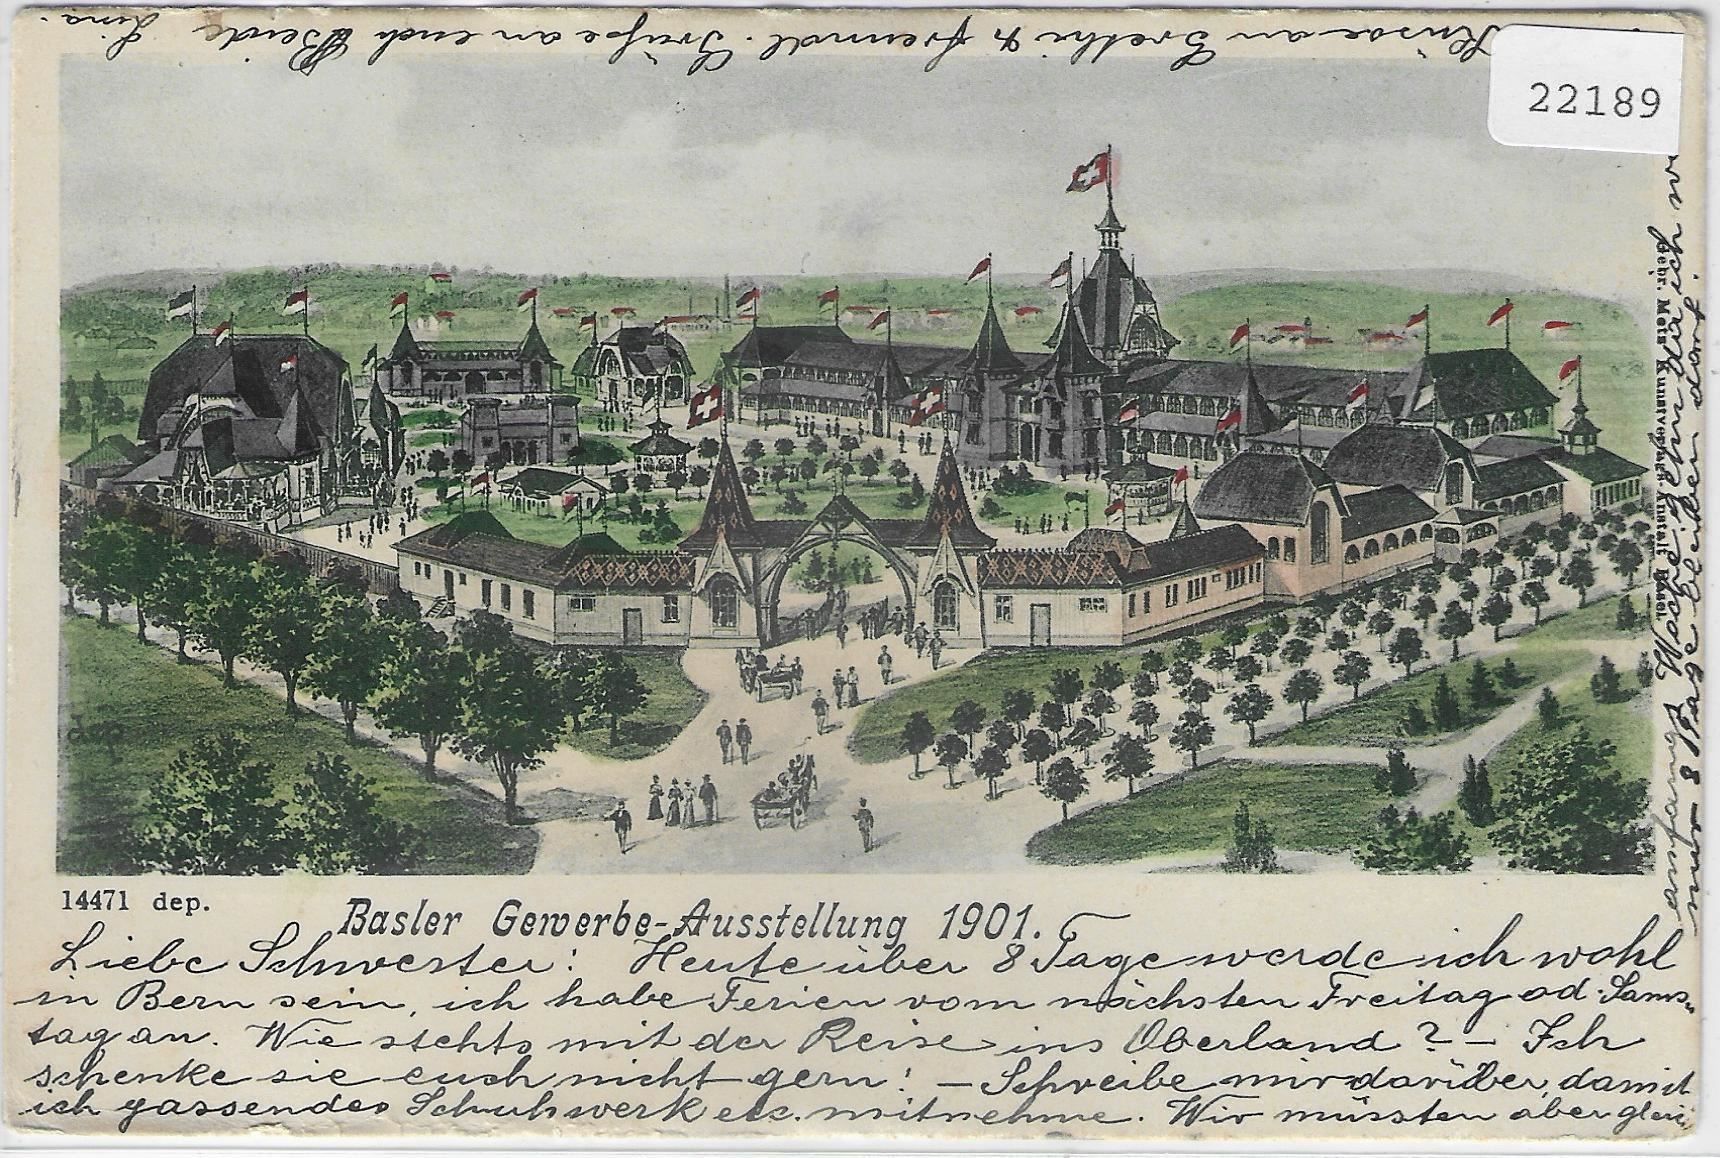 22189
Gebr. Metz Kunstverlags-Anstalt Basel.
14471 dep.
Basler Gewerbe-Ausstellung 1901.
Liebe Schwester! Heute über 8 Tage werde ich wohl
in Bern sein, ich habe Ferien vom nächsten Freitag od. Sams-
tag an. Wie stehts mit der Reise ins Oberland? – Ich
schenke sie euch nicht gern! – Schreibe mir darüber, damit
ich passendes Schuhwerk etc. mitnehme. Wir müssten aber gleich
anfangs Woche gehn da ich
nur 8 Tage bleiben darf.
Küsse an Grethi & freundl. Grüße an euch Beide
Lina.